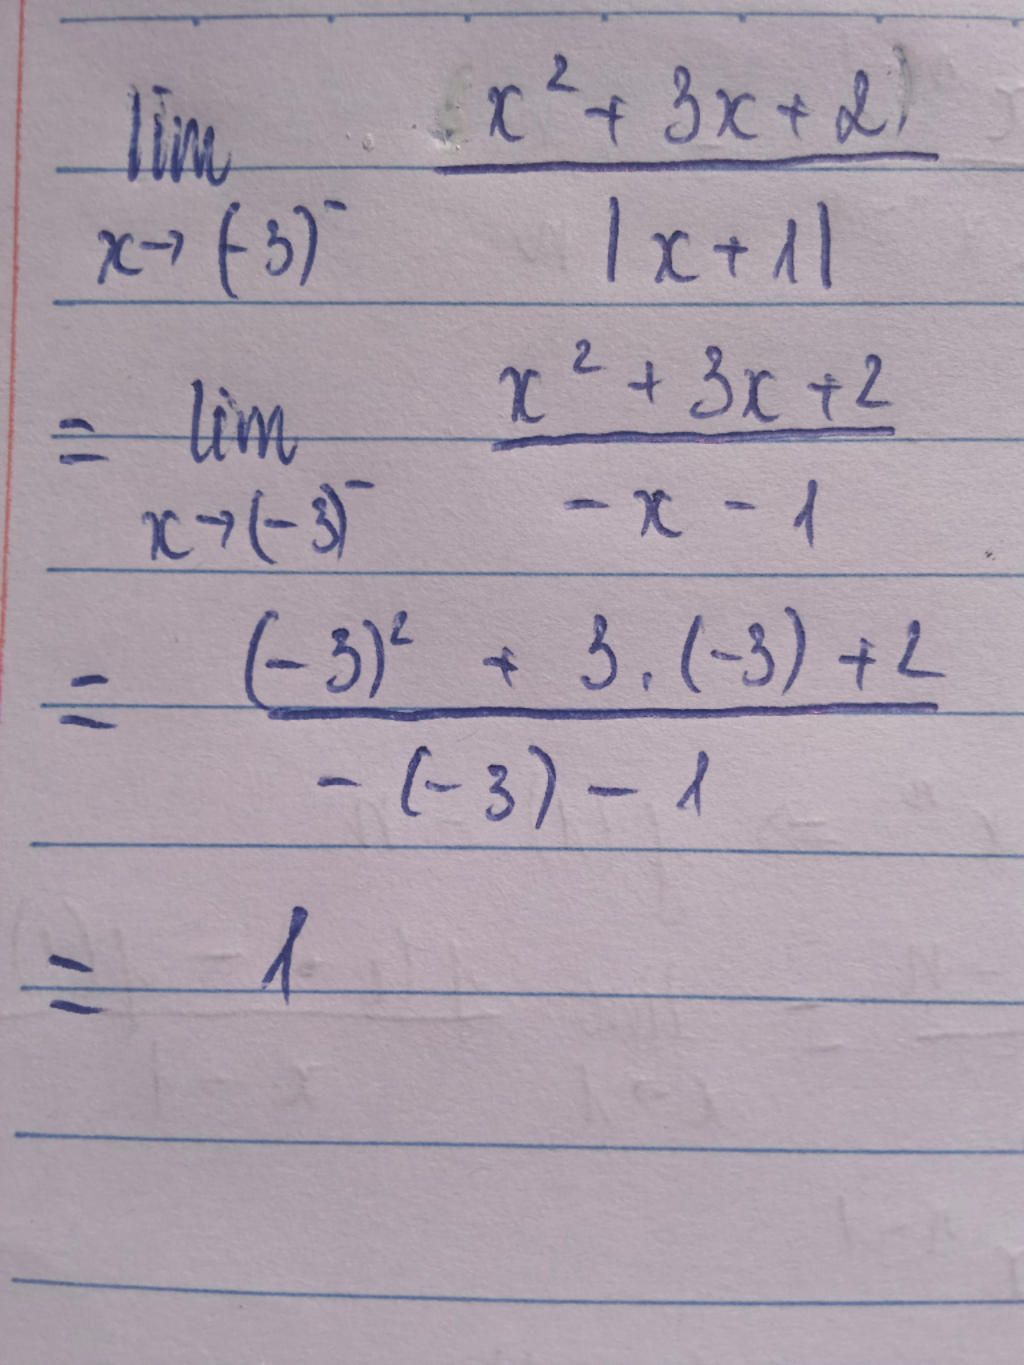 lim x→(-3)⁻ (x² + 3x + 2) / |x + 1|
= lim x→(-3)⁻ x² + 3x + 2 / -x - 1
= (-3)² + 3.(-3) + 2 / -(-3) - 1
= 1